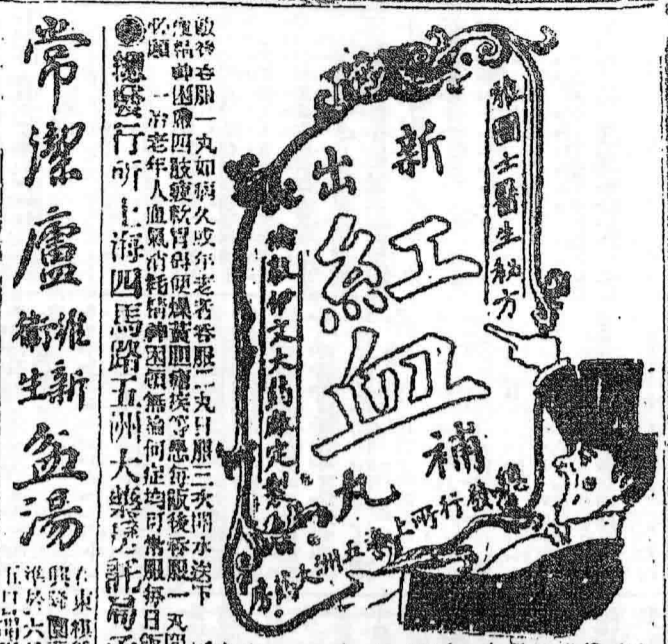 雅國士醫生秘方
新出
紅血
補丸
倫敦伊文大药房定製
總發行所上海五洲大药房
飯後吞服一丸如病久或年老者吞服二丸日服三次開水送下
精神困憊四肢疲軟胃碍便燥黃胆瘡疾等患每飯後吞服一丸
一治老年人血氣消耗精神困頓無論何症均可常服每日
●總發行所上海四馬路五洲大藥房
常潔廬
維新
衛生
盆湯
在東
五日開